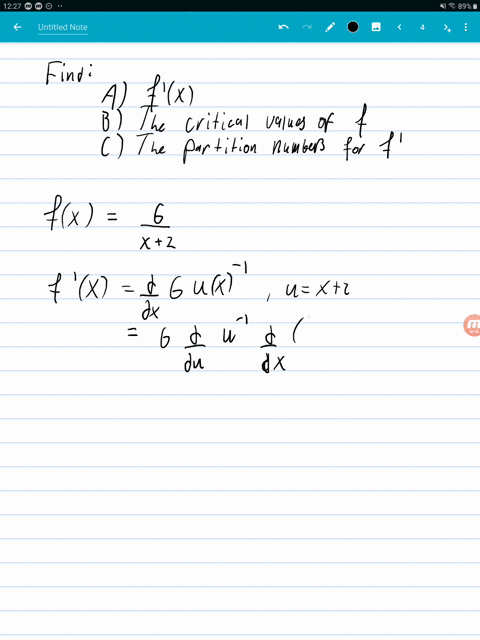 12:27 89%
Untitled Note 4
Find:
A) f'(x)
B) The critical values of f
C) The partition numbers for f'
f(x) = 6/(x+2)
f'(x) = d/dx 6 u(x)^-1 , u = x+2
= 6 d/du u^-1 d/dx (